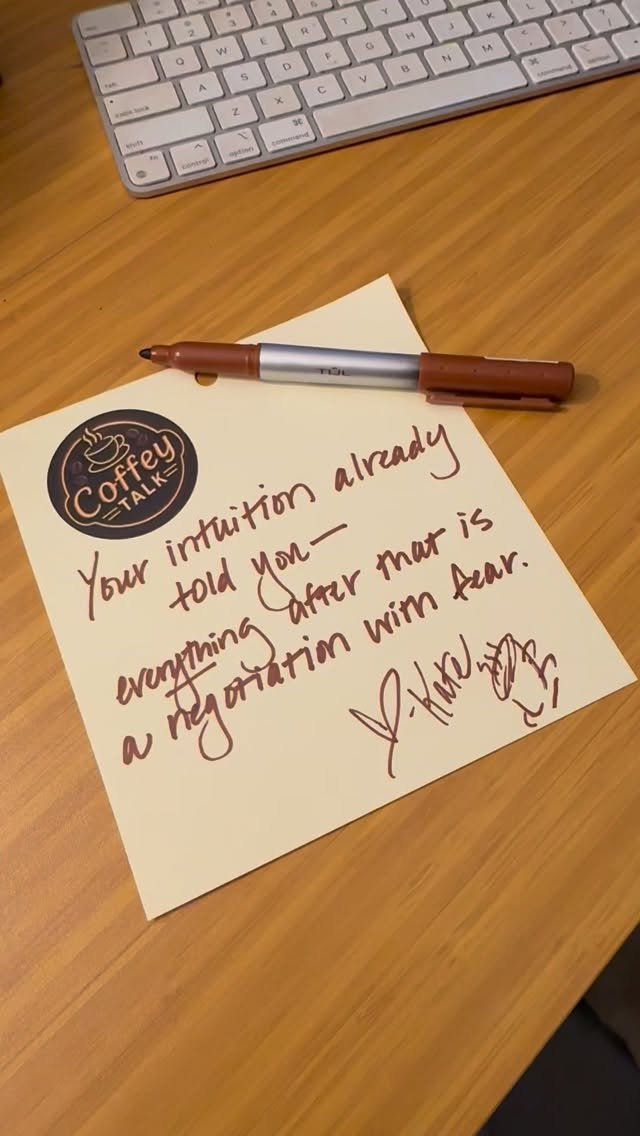 Q W E R T Y U
A S D F G H J K L
caps lock
Z X C V B N M
shift
fn control option command
command option
TIJL
Coffey
TALK
Your intuition already
told you—
everything after that is
a negotiation with fear.
♡-Kate